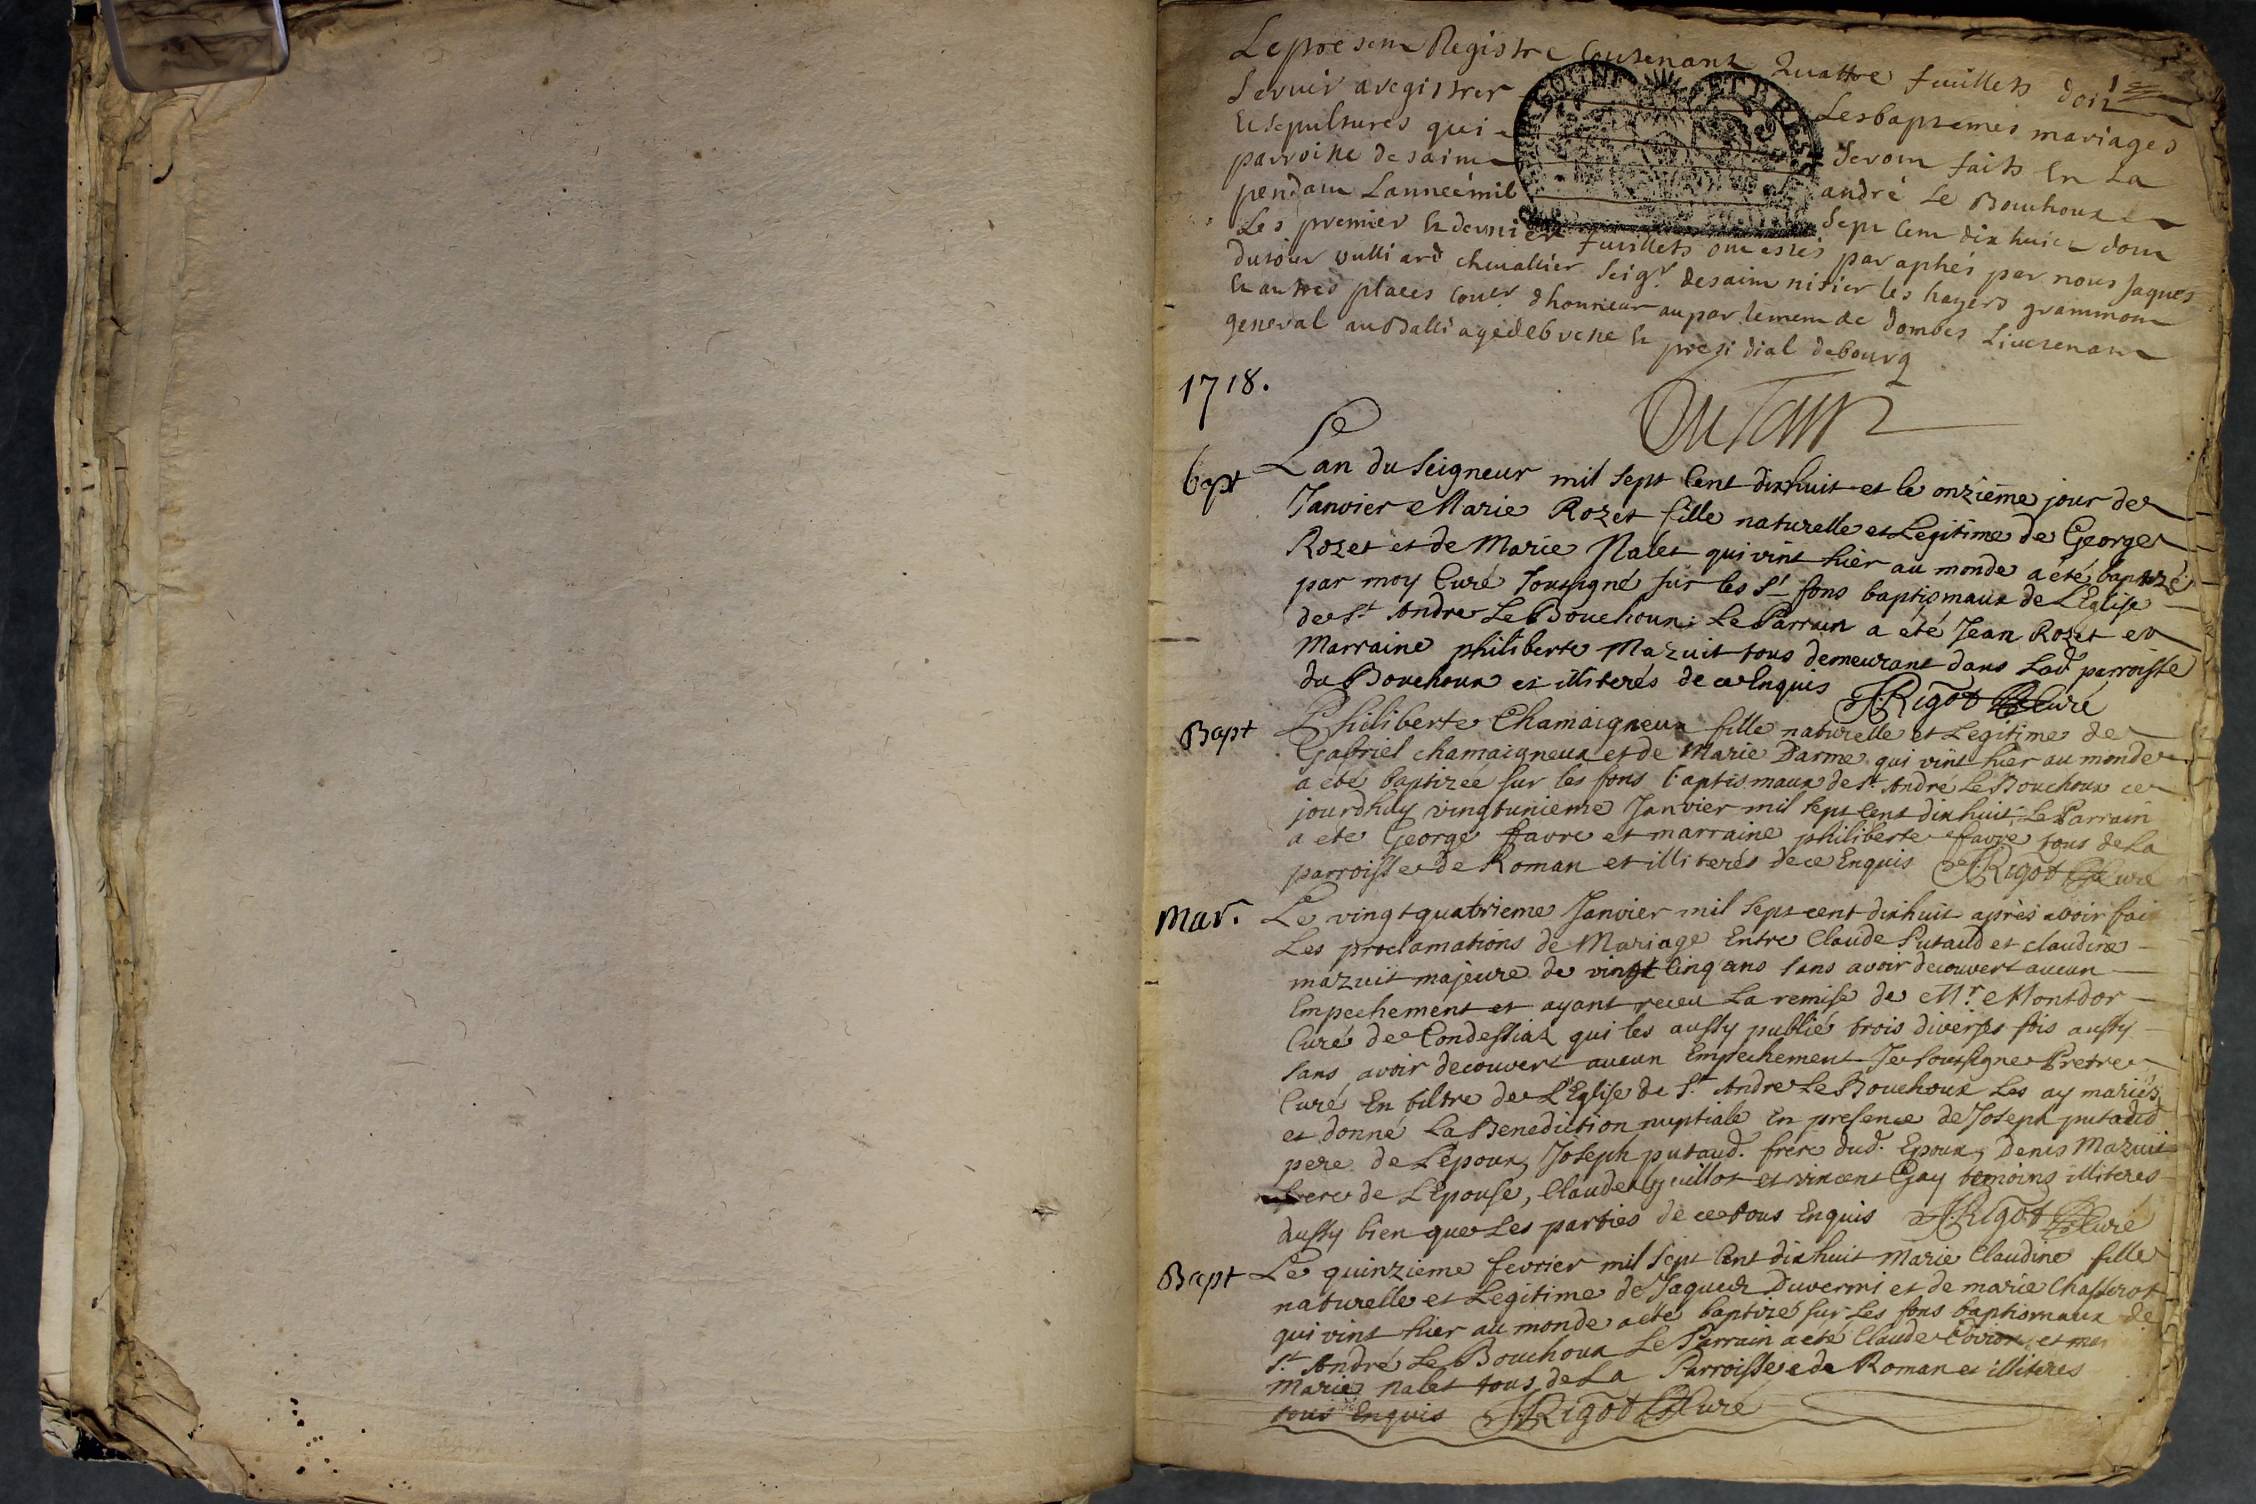 Le present Registre Contenant Quattre feuillets doit 1er
Servir a registrer Les baptemes mariages
Et sepultures qui Seront faits En La
parroisse de saint andré Le Bouchoux
pendant Lannée mil Sept Cent dix huict dont
Les premier Et dernier feuillets ont estés paraphés par nous Jaques
dutour vulliard chevallier Seigr. de saint nisier les hayers grammont
Et autres places Coner d'honneur au parlement de dombes Lieutenant
general au Balliage de bresse Et presidial de bourg
BOURGOGNE ET BRESSE
1718.
Dutour
bapt
L'an du Seigneur mil sept Cent dixhuit et le onziéme jour de
Janvier Marie Rozet fille naturelle et Legitime de George
Rozet et de Marie Nalet qui vint hier au monde a été baptizé
par moy Curé soussigné sur les St. fons baptismaux de L'Eglise
de St. Andre Le Bouchoux; Le Parrain a été Jean Rozet et
Marraine philiberte Mazuit tous demeurant dans Lad. parroisse
du Bouchoux et illiterés de ce Enquis J. Rigot Curé
Bapt
Philiberte Chamaigneux fille naturelle et Legitime de
Gabriel chamaigneux et de Marie Darme qui vint hier au monde
a eté baptizeé sur les fons baptismaux de St. André Le Bouchoux ce
jourdhuy vingtunieme Janvier mil sept Cent dixhuit; Le Parrain
a ete George ffavre et marraine philiberte ffavre tous de La
parroisse de Roman et illiterés de ce Enquis J. Rigot Curé
Mar.
Le vingtquatrieme Janvier mil sept cent dixhuit après avoir fait
Les proclamations de Mariage Entre Claude Putaud et claudine
mazuit majeure de vingt Cinq ans sans avoir decouvert aucun
Empechement et ayant receu La remise de Mr. Montdor
Curé de Condessiat qui les aussy publiés trois diverses fois aussy
sans avoir decouvert aucun Empechement Je soussigné Pretre
Curé En tiltre de L'Eglise de St. Andre Le Bouchoux Les ay mariés
et donné La Benediction nuptiale En presence de Joseph putaud
pere de L'epoux, Joseph putaud. frere dud. Epoux, Denis Mazuit
frere de L'Epouse, Claude Guillot et vincent Gay temoins illiteres
aussy bien que Les parties de ce tous Enquis J. Rigot Curé
Bapt
Le quinzieme fevrier mil sept Cent dixhuit Marie Claudine fille
naturelle et Legitime de Jaques Duverni et de marie Chasserot
qui vint hier au monde a eté baptizé sur Les fons baptismaux de
St. André Le Bouchoux Le Parrain a eté Claude et mar
Marie Nalet tous de La Parroisse de Roman et illiteres
tous Enquis J. Rigot Curé